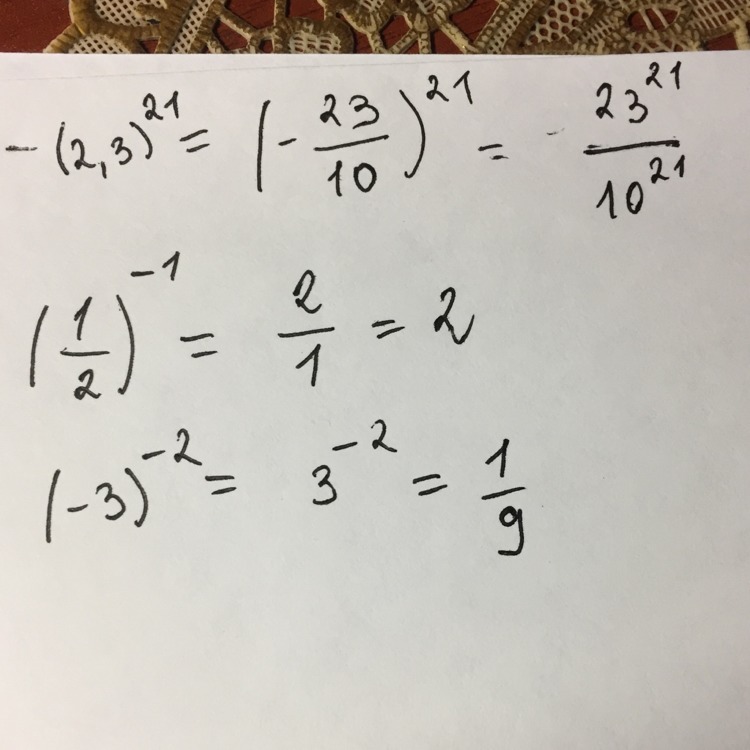 -(2,3)^21 = (-23/10)^21 = - 23^21/10^21
(1/2)^-1 = 2/1 = 2
(-3)^-2 = 3^-2 = 1/9